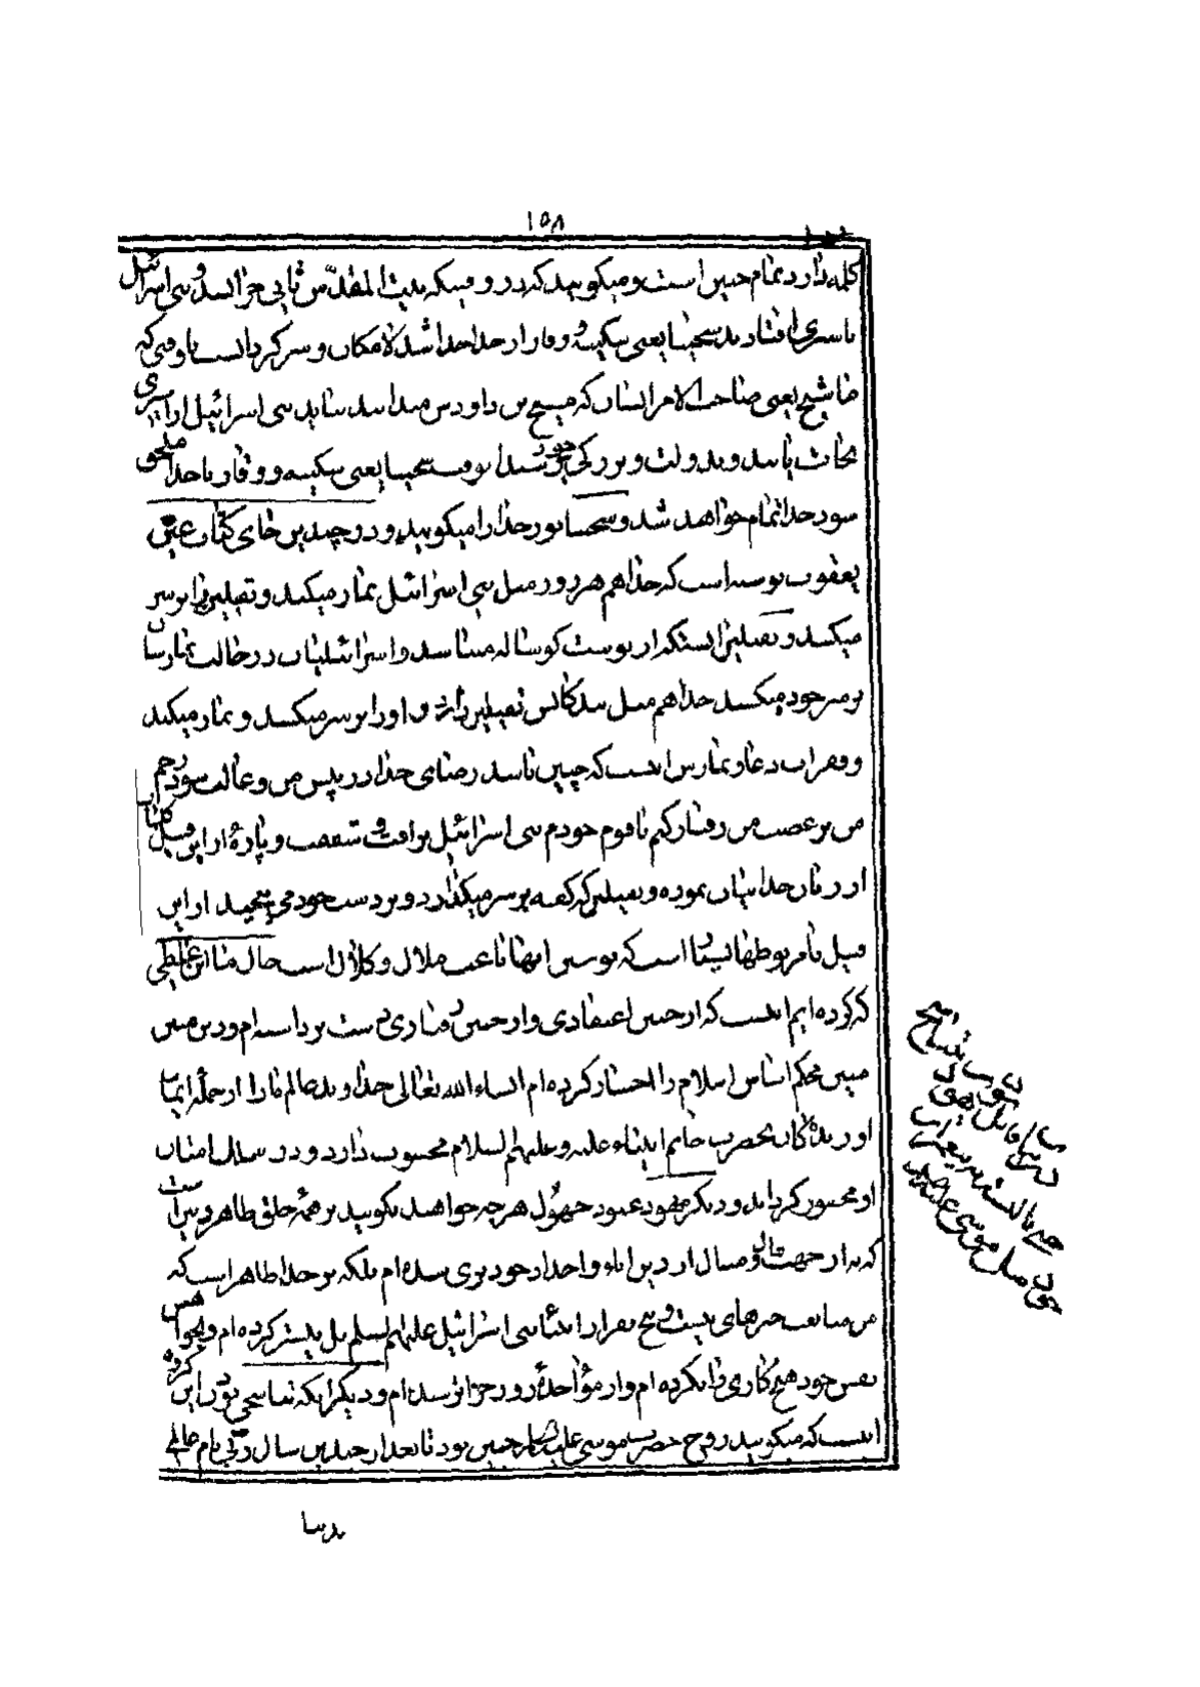 ۱۵۸
کله دارد تمام چنین است و میگویند که در وقتیکه بیت المقدّس ثانی خراب شد و بنی اسرائیل
باسیری افتادند سخینا یعنی سکینه و وقار از خدا جدا شد لامکان و سرگردانست تا وقتی که
ماشیح یعنی صاحب الامر ایشان که مسیح بن داودش میدانند بیاید بنی اسرائیل از اسیری
نجات یابند و بدولت و بزرگی خود رسند او وقت سخینا یعنی سکینه و وقار با خدا ملحق
شود خدا تمام خواهد شد و سخینا نور خدا را میگویند و در چندین جای کتاب عین
یعقوب نوشته است که خدا هم هر روز مثل بنی اسرائیل نماز میکند و تفیلین را بر سر
میکند و تفیلین اینست که از پوست گوساله میباشد و اسرائیلیان در حالت نماز شان
بر سر خود میکنند خدا هم مثل بندگانش تفیلین دارد و او را بر سر میکند و نماز میکند
و قرائت دعا و نمازش اینست که چنین باشد رضای خدا در پیش من و غالب شود رحم
من بر غضب من رفتار کنم با قوم خودم بنی اسرائیل برافت و شفقت و پارهٔ از این قبیل کلمات
از زبان خدا بیان نموده و تفیلین که کفه بر سر میگذارد و بر دست خود می پیچید از این
قبیل نامربوطها بسیار است که نوشتن اینها باعث ملال و کلال است حال ما این غلطی
که کرده ایم اینست که از چنین اعتقادی و از چنین رفتاری دست برداشته ام و دین مبین
متین محکم اساس اسلام را اختیار کرده ام انشاء الله تعالی خداوند عالم ما را از جملهٔ امتان
او و بندگان حضرت خاتم انبیاء علیه و علیهم السلام محسوب دارد و در سلک امتان
او محشور گرداند و دیگر یهود عنود جهول هر چه خواهند بگویند بر همهٔ خلق ظاهر و بین است
که نه از جهت مال و منال از دین اباء و اجداد خود بری شده ام بلکه بر خدا ظاهر است که
من متابعت خبرهای بیست و پنج نفر از انبیای بنی اسرائیل علیهم السلم بل بیشتر کرده ام و بخواهش
نفس خود هیچ کاری را نکرده ام و از مؤاخذهٔ روز جزا ترسیده ام و دیگر آنکه تناسخی بودن این گروه
اینست که میگویند روح حضرت موسی علیه السلام چنین بود تا بعد از چندین سال ربّی نام عالمی
بدنیا